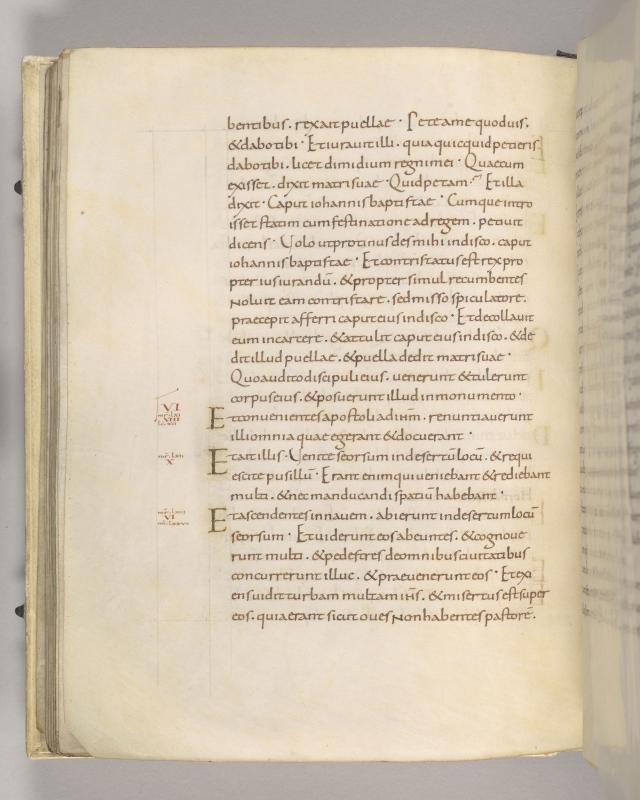 bentibus. rex ait puellae · Pete ame quoduis.
& dabo tibi · Et iurauit illi. quia quicquid petieris
dabo tibi. licet dimidium regni mei · Quae cum
exisset. dixit matri suae · Quid petam · Et illa
dixit · Caput iohannis baptistae · Cumque intro
isset statim cum festinatione ad regem. petiuit
dicens · Uolo ut protinus des mihi in disco. caput
iohannis baptistae · Et contristatus est rex pro
pter iusiurandū. & propter simul recumbentes
Noluit eam contristare. sed misso spiculatore.
praecepit afferri caput eius in disco · Et decollauit
eum in carcere. & attulit caput eius in disco. & de
dit illud puellae. & puella dedit matri suae ·
Quo audito discipuli eius. uenerunt & tulerunt
corpus eius. & posuerunt illud in monumento ·
VI
VIII
Et conuenientes apostoli ad ihm. renuntiauerunt
illi omnia quae egerant & docuerant ·
X
Et ait illis · Uenite seorsum in desertū locū. & requi
escite pusillū · Erant enim qui ueniebant & rediebant
multi. & nec manducandi spatiū habebant ·
VI
Et ascendentes in nauem. abierunt in desertum locū
seorsum · Et uiderunt eos abeuntes. & cognoue
runt multi. & pedestres de omnibus ciuitatibus
concurrerunt illuc. & praeuenerunt eos · Et exi
ens uidit turbam multam ihs. & misertus est super
eos. quia erant sicut oues Non habentes pastorē.